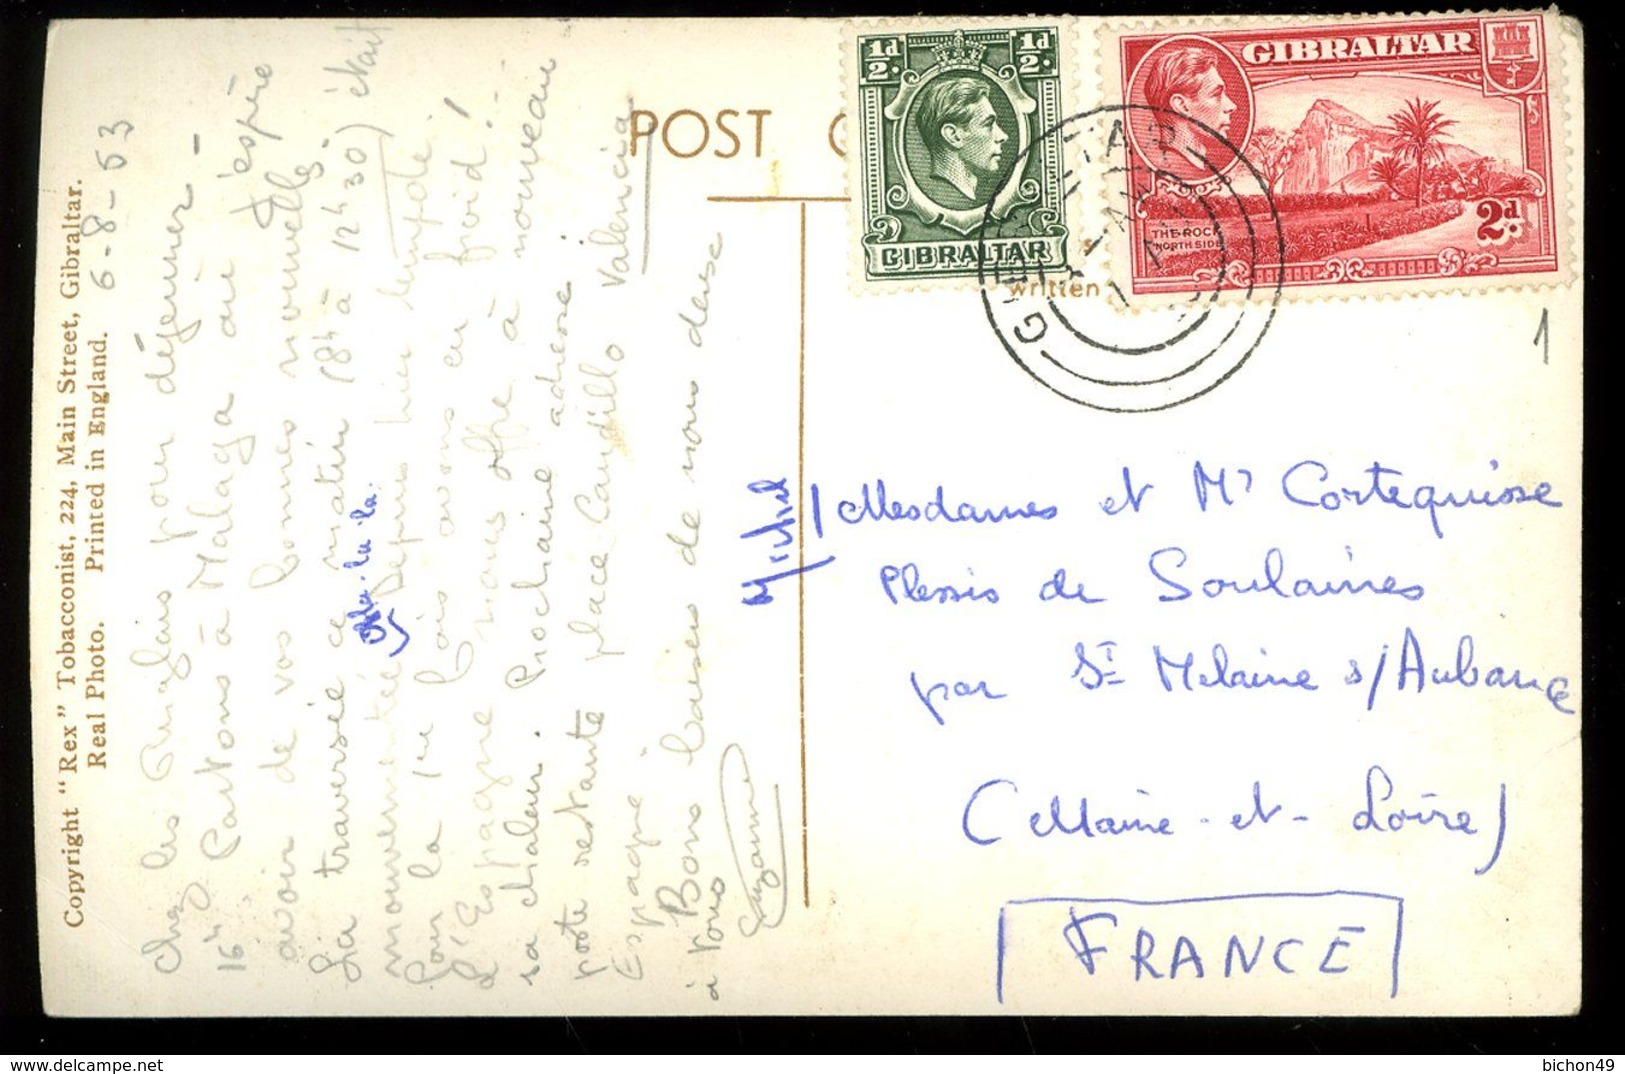 Copyright "Rex" Tobacconist, 224, Main Street, Gibraltar.
Real Photo. Printed in England.
6-8-53
Chez les Anglais pour déjeuner -
16h Partons à Malaga où j'espère
avoir de vos bonnes nouvelles.
La traversée ce matin (8h à 12h30) était
mouvementée Depuis hier
la-la-la.
Pour la 1re fois avons eu froid!
L'Espagne nous offre à nouveau
sa chaleur. Prochaine adresse
poste restante place Caudillo Valencia
Espagne
Bons baisers de nous deux
à vous
Suzanne
Michel
POST C
written
½d ½d
GIBRALTAR
GIBRALTAR
THE ROCK
NORTH SIDE
2d
1
Mesdames et Mr Cortequisse
Plessis de Soulaines
par St Melaine s/Aubance
(Maine-et-Loire)
FRANCE
bichon49